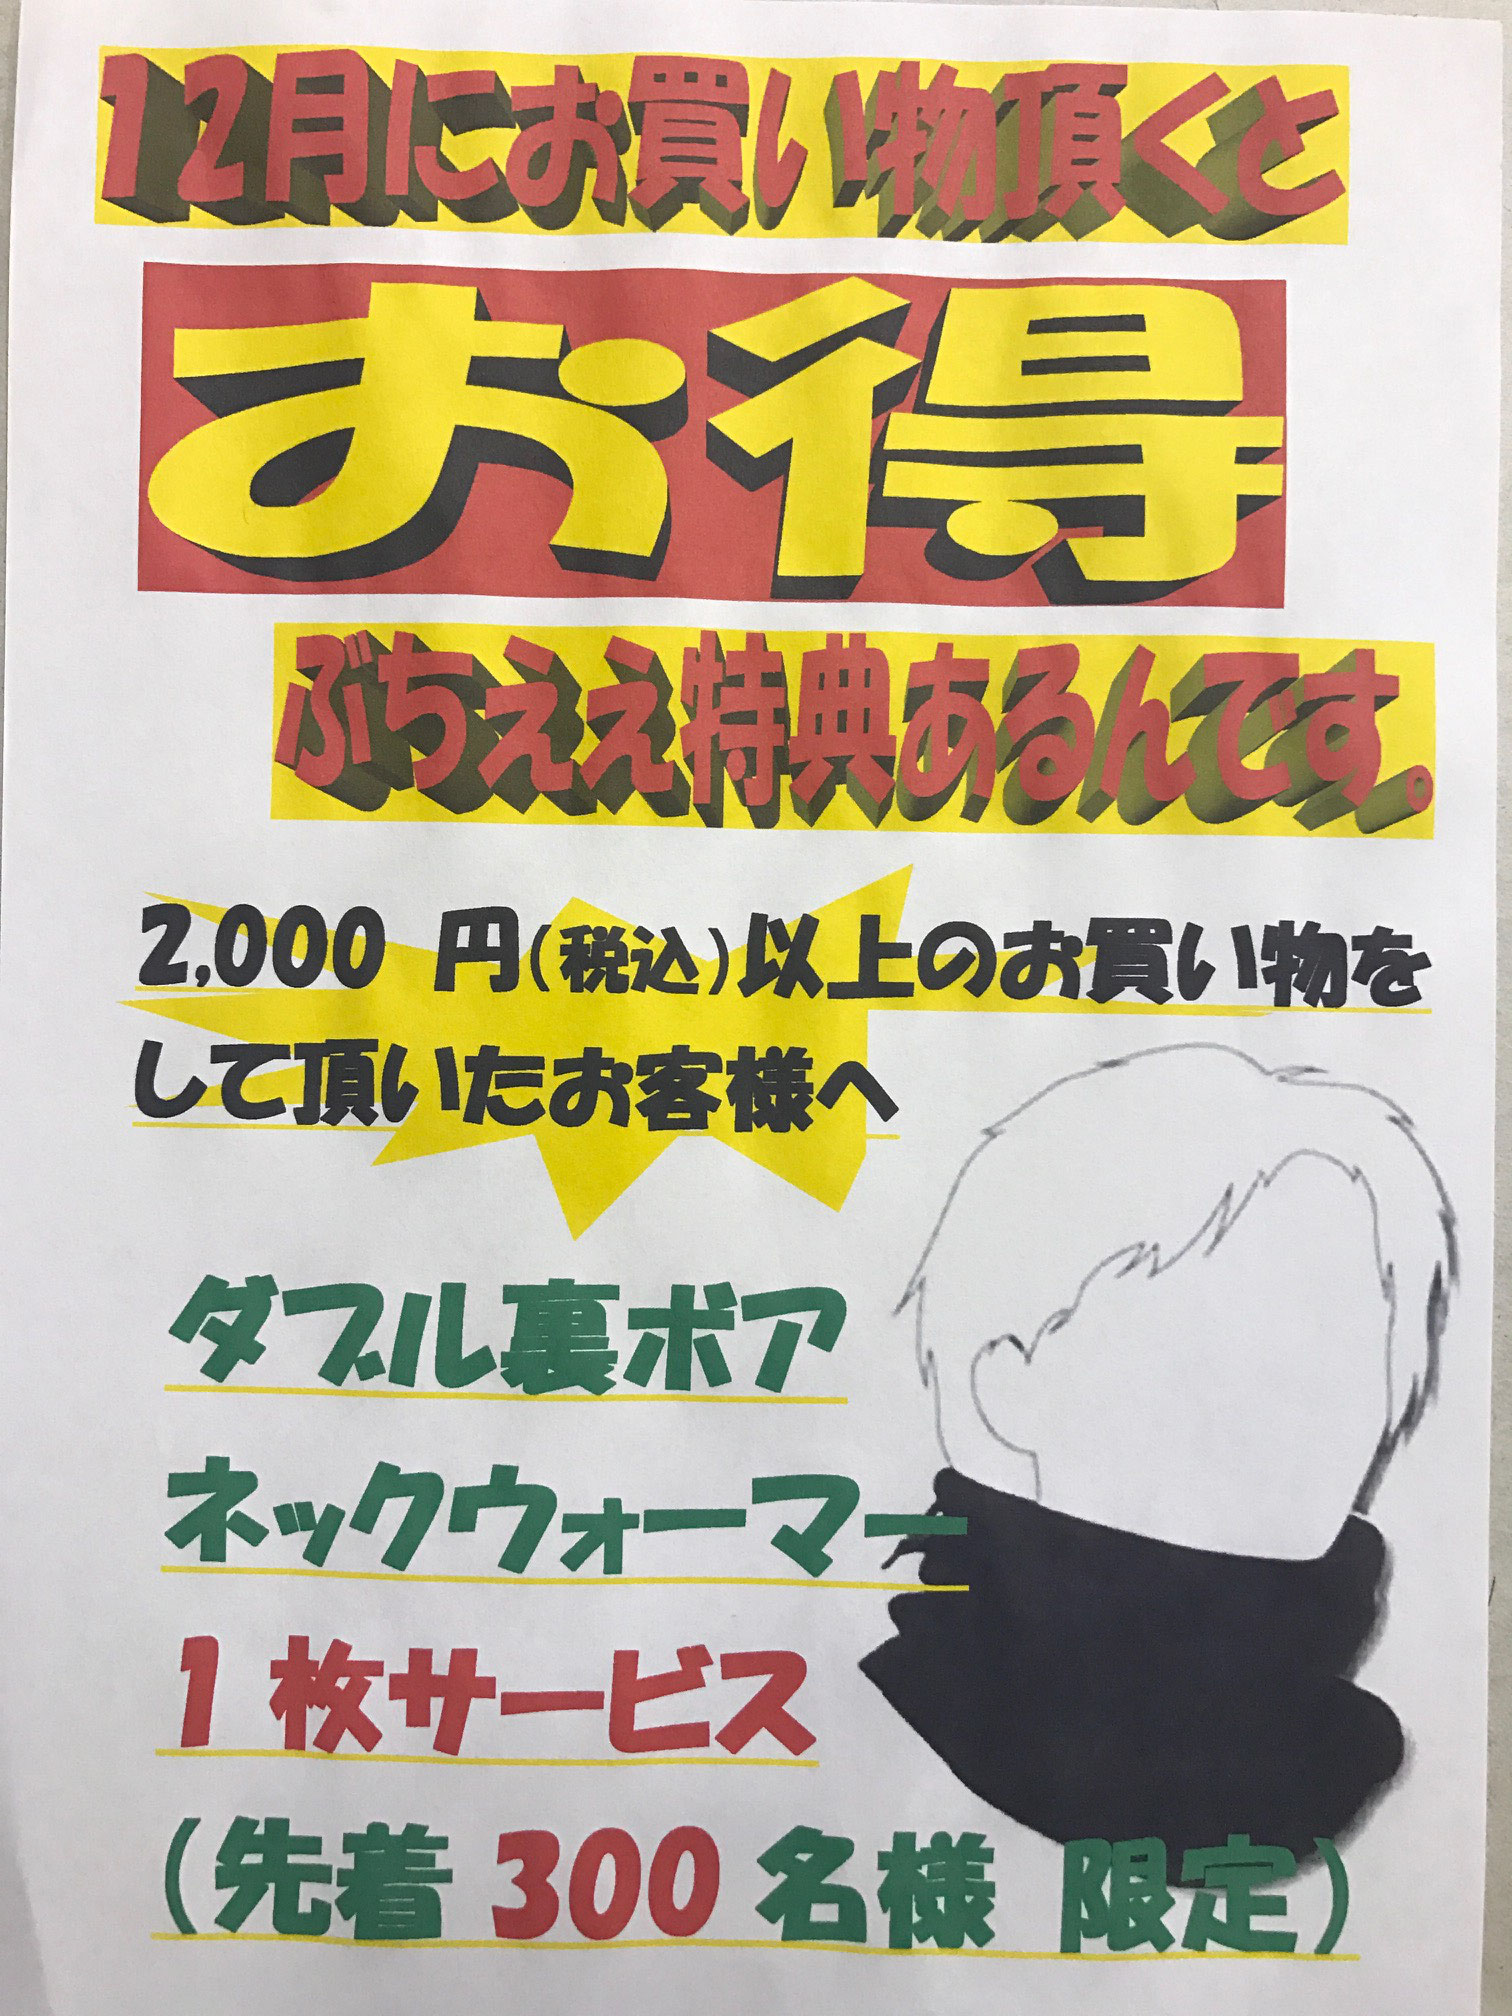 12月にお買い物頂くと
お得
ぶちええ特典あるんです。
2,000 円(税込)以上のお買い物を
して頂いたお客様へ
ダブル裏ボア
ネックウォーマー
1 枚サービス
(先着 300 名様 限定)